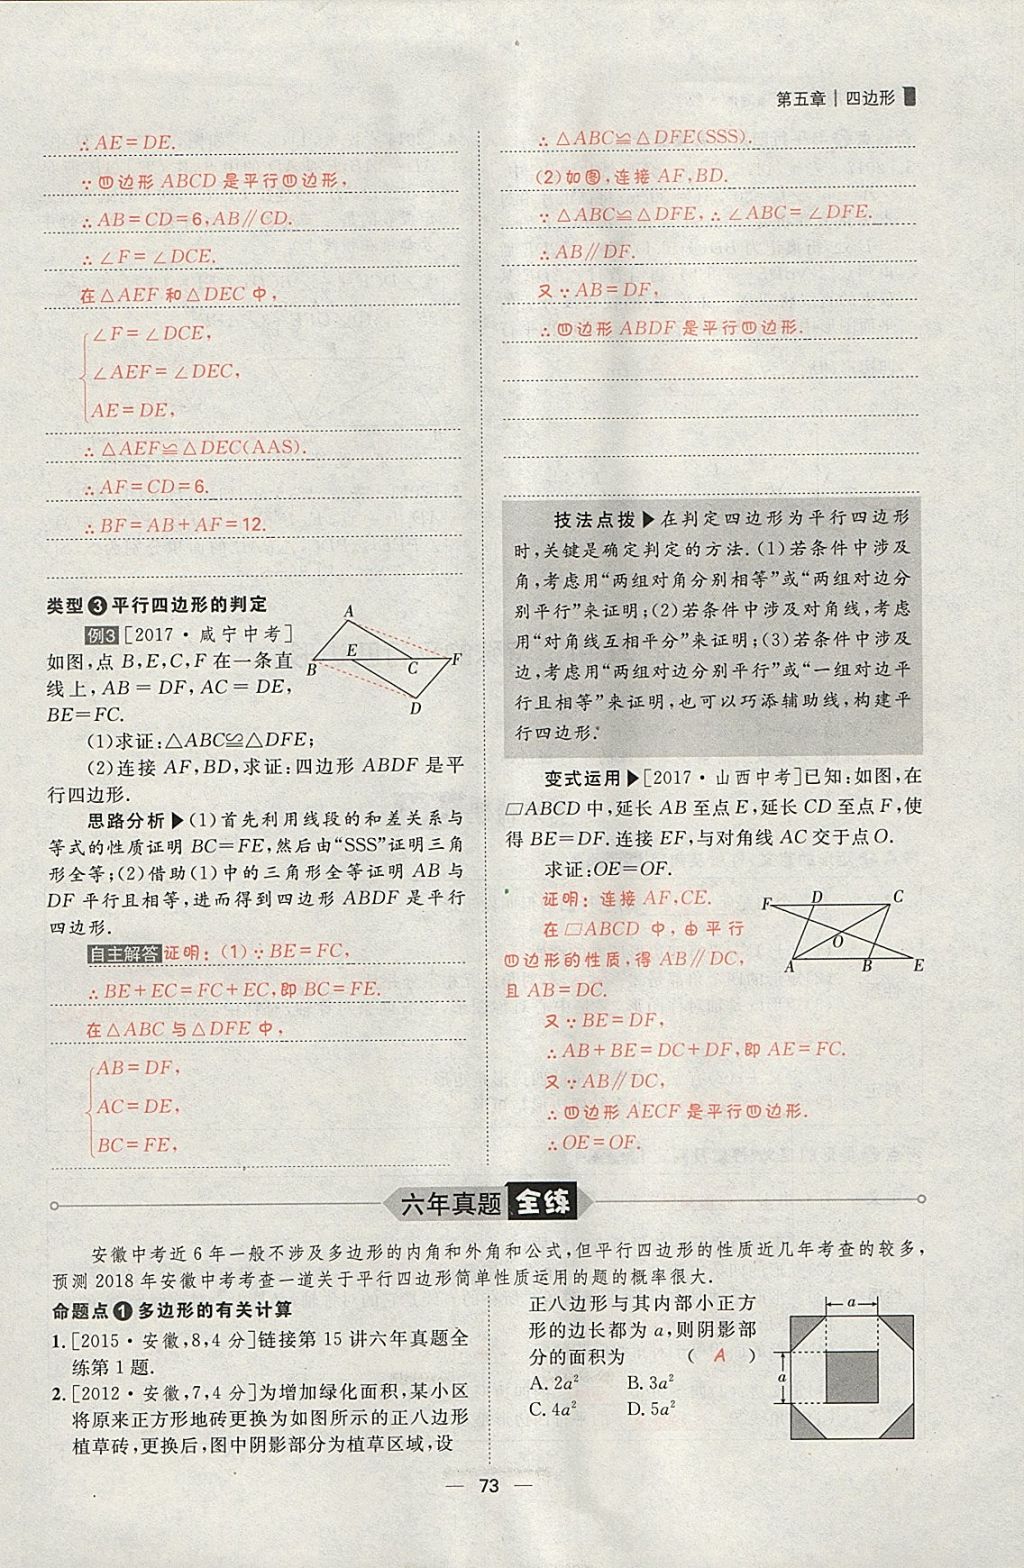 第五章 | 四边形
∴AE=DE.
∵四边形ABCD是平行四边形,
∴AB=CD=6,AB∥CD.
∴∠F=∠DCE.
在△AEF和△DEC中,
∠F=∠DCE,
∠AEF=∠DEC,
AE=DE,
∴△AEF≌△DEC(AAS).
∴AF=CD=6.
∴BF=AB+AF=12.
类型❸平行四边形的判定
例3 [2017·咸宁中考]
如图,点B,E,C,F在一条直
线上,AB=DF,AC=DE,
BE=FC.
A
E
B
C
F
D
(1)求证:△ABC≌△DFE;
(2)连接AF,BD,求证:四边形ABDF是平
行四边形.
思路分析▶(1)首先利用线段的和差关系与
等式的性质证明BC=FE,然后由“SSS”证明三角
形全等;(2)借助(1)中的三角形全等证明AB与
DF平行且相等,进而得到四边形ABDF是平行
四边形.
自主解答 证明:(1)∵BE=FC,
∴BE+EC=FC+EC,即BC=FE.
在△ABC与△DFE中,
AB=DF,
AC=DE,
BC=FE,
∴△ABC≌△DFE(SSS).
(2)如图,连接AF,BD.
∵△ABC≌△DFE,∴∠ABC=∠DFE.
∴AB∥DF.
又∵AB=DF,
∴四边形ABDF是平行四边形.
技法点拨▶在判定四边形为平行四边形
时,关键是确定判定的方法.(1)若条件中涉及
角,考虑用“两组对角分别相等”或“两组对边分
别平行”来证明;(2)若条件中涉及对角线,考虑
用“对角线互相平分”来证明;(3)若条件中涉及
边,考虑用“两组对边分别平行”或“一组对边平
行且相等”来证明,也可以巧添辅助线,构建平
行四边形.
变式运用▶[2017·山西中考]已知:如图,在
▱ABCD中,延长AB至点E,延长CD至点F,使
得BE=DF.连接EF,与对角线AC交于点O.
求证:OE=OF.
证明:连接AF,CE.
在▱ABCD中,由平行
四边形的性质,得AB∥DC,
且AB=DC.
F
D
C
O
A
B
E
又∵BE=DF,
∴AB+BE=DC+DF,即AE=FC.
又∵AB∥DC,
∴四边形AECF是平行四边形.
∴OE=OF.
六年真题 全练
安徽中考近6年一般不涉及多边形的内角和外角和公式,但平行四边形的性质近几年考查的较多,
预测2018年安徽中考考查一道关于平行四边形简单性质运用的题的概率很大.
命题点❶多边形的有关计算
1.[2015·安徽,8,4分]链接第15讲六年真题全
练第1题.
2.[2012·安徽,7,4分]为增加绿化面积,某小区
将原来正方形地砖更换为如图所示的正八边形
植草砖,更换后,图中阴影部分为植草区域,设
正八边形与其内部小正方
形的边长都为a,则阴影部
分的面积为 ( A )
A.2a² B.3a²
C.4a² D.5a²
a
a
— 73 —